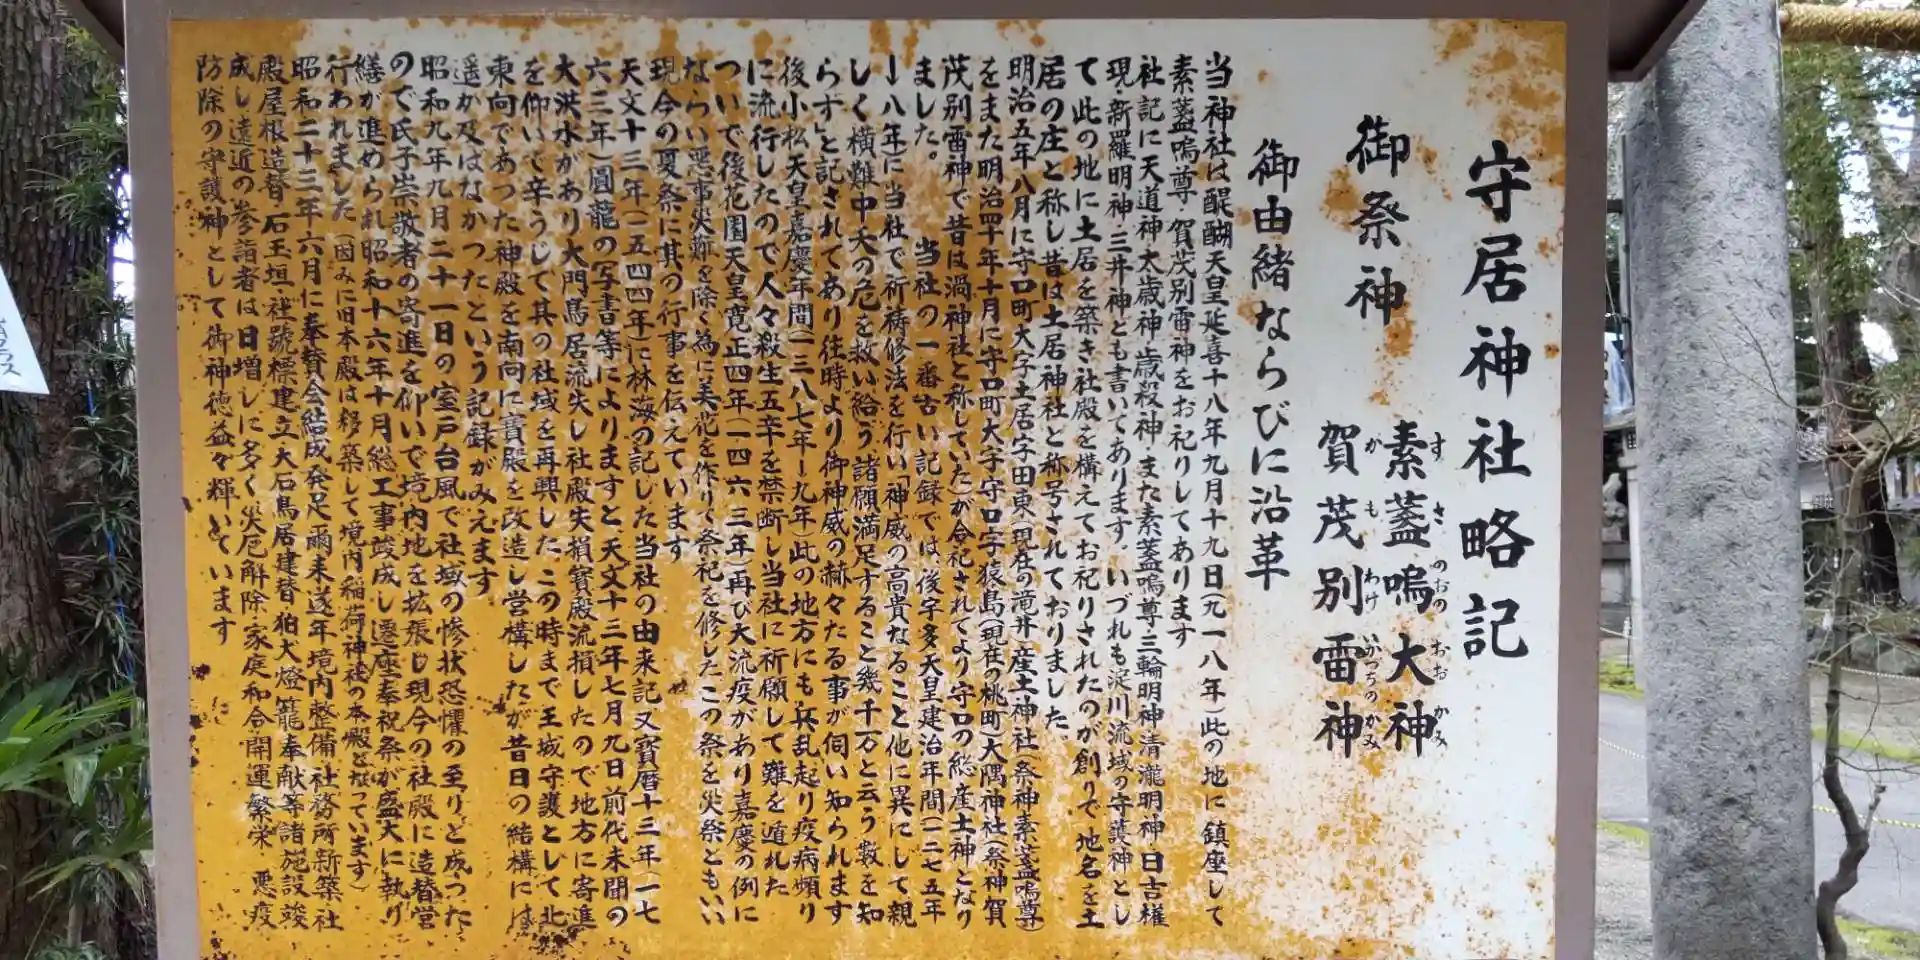 守居神社略記
御祭神
素盞嗚大神
すさのおのおおかみ
賀茂別雷神
かもわけいかつちのかみ
御由緒ならびに沿革
当神社は醍醐天皇延喜十八年九月十九日(九一八年)此の地に鎮座して
素盞嗚尊 賀茂別雷神をお祀りしてあります
社記に天道神 太歳神 歳殺神 また素盞嗚尊 三輪明神 清瀧明神 日吉権
現 新羅明神 三井神とも書いてあります。いづれも淀川流域の守護神とし
て此の地に土居を築き社殿を構えてお祀りされたのが創りで 地名を土
居の庄と称し昔は土居神社と称号されておりました
明治五年八月に守口町大字土居字田東(現在の滝井)産土神社(祭神素盞嗚尊)
をまた明治四十年十月に守口町大字守口字猿島(現在の桃町)大隅神社(祭神賀
茂別雷神で昔は渦神社と称していた)が合祀されてより守口の総産土神となり
ました。 当社の一番古い記録では、後宇多天皇建治年間(一二七五年
ー八年に当社で祈祷修法を行い「神威の高貴なること他に異にして親
しく横難中夭の危を救い給う、諸願満足すること幾千万と云う数を知
らず」と記されてあり往時より御神威の赫々たる事が伺い知られます
後小松天皇嘉慶年間(一三八七年ー九年)此の地方にも兵乱起り疫病頻り
に流行したので人々殺生五辛を禁断し当社に祈願して難を遁れた
ついで後花園天皇寛正四年(一四六三年)再び大流疫があり嘉慶の例に
ならい悪事災難を除く為に美花を作りて祭祀を修したこの祭を災祭ともいい
現今の夏祭に其の行事を伝えています
天文十三年(一五四四年)に林海の記した当社の由来記又寳暦十三年(一七
六三年)圓龍の写書等によりますと天文十三年七月九日前代未聞の
大洪水があり大門鳥居流失し社殿失損寳殿流損したので地方に寄進
を仰いで辛うじて其の社域を再興した この時まで王城守護として北
東向であった神殿を南向に寳殿を改造し営構したが昔日の結構には
遥か及ばなかったという記録がみえます
昭和九年九月二十一日の室戸台風で社域の惨状恐懼の至りと成った
ので氏子崇敬者の寄進を仰いで境内地を拡張し現今の社殿に造替営
繕が進められ昭和十六年十月総工事竣成し遷座奉祝祭が盛大に執り
行われました(因みに旧本殿は移築して境内稲荷神社の本殿となっています)
昭和二十三年六月に奉賛会結成発足爾来逐年境内整備 社務所新築 社
殿屋根造替 石玉垣 社號標建立 大石鳥居建替 狛犬燈籠奉献等諸施設竣
成し遠近の参詣者は日増しに多く災厄解除 家庭和合 開運繁栄 悪疫
防除の守護神として御神徳益々輝いています